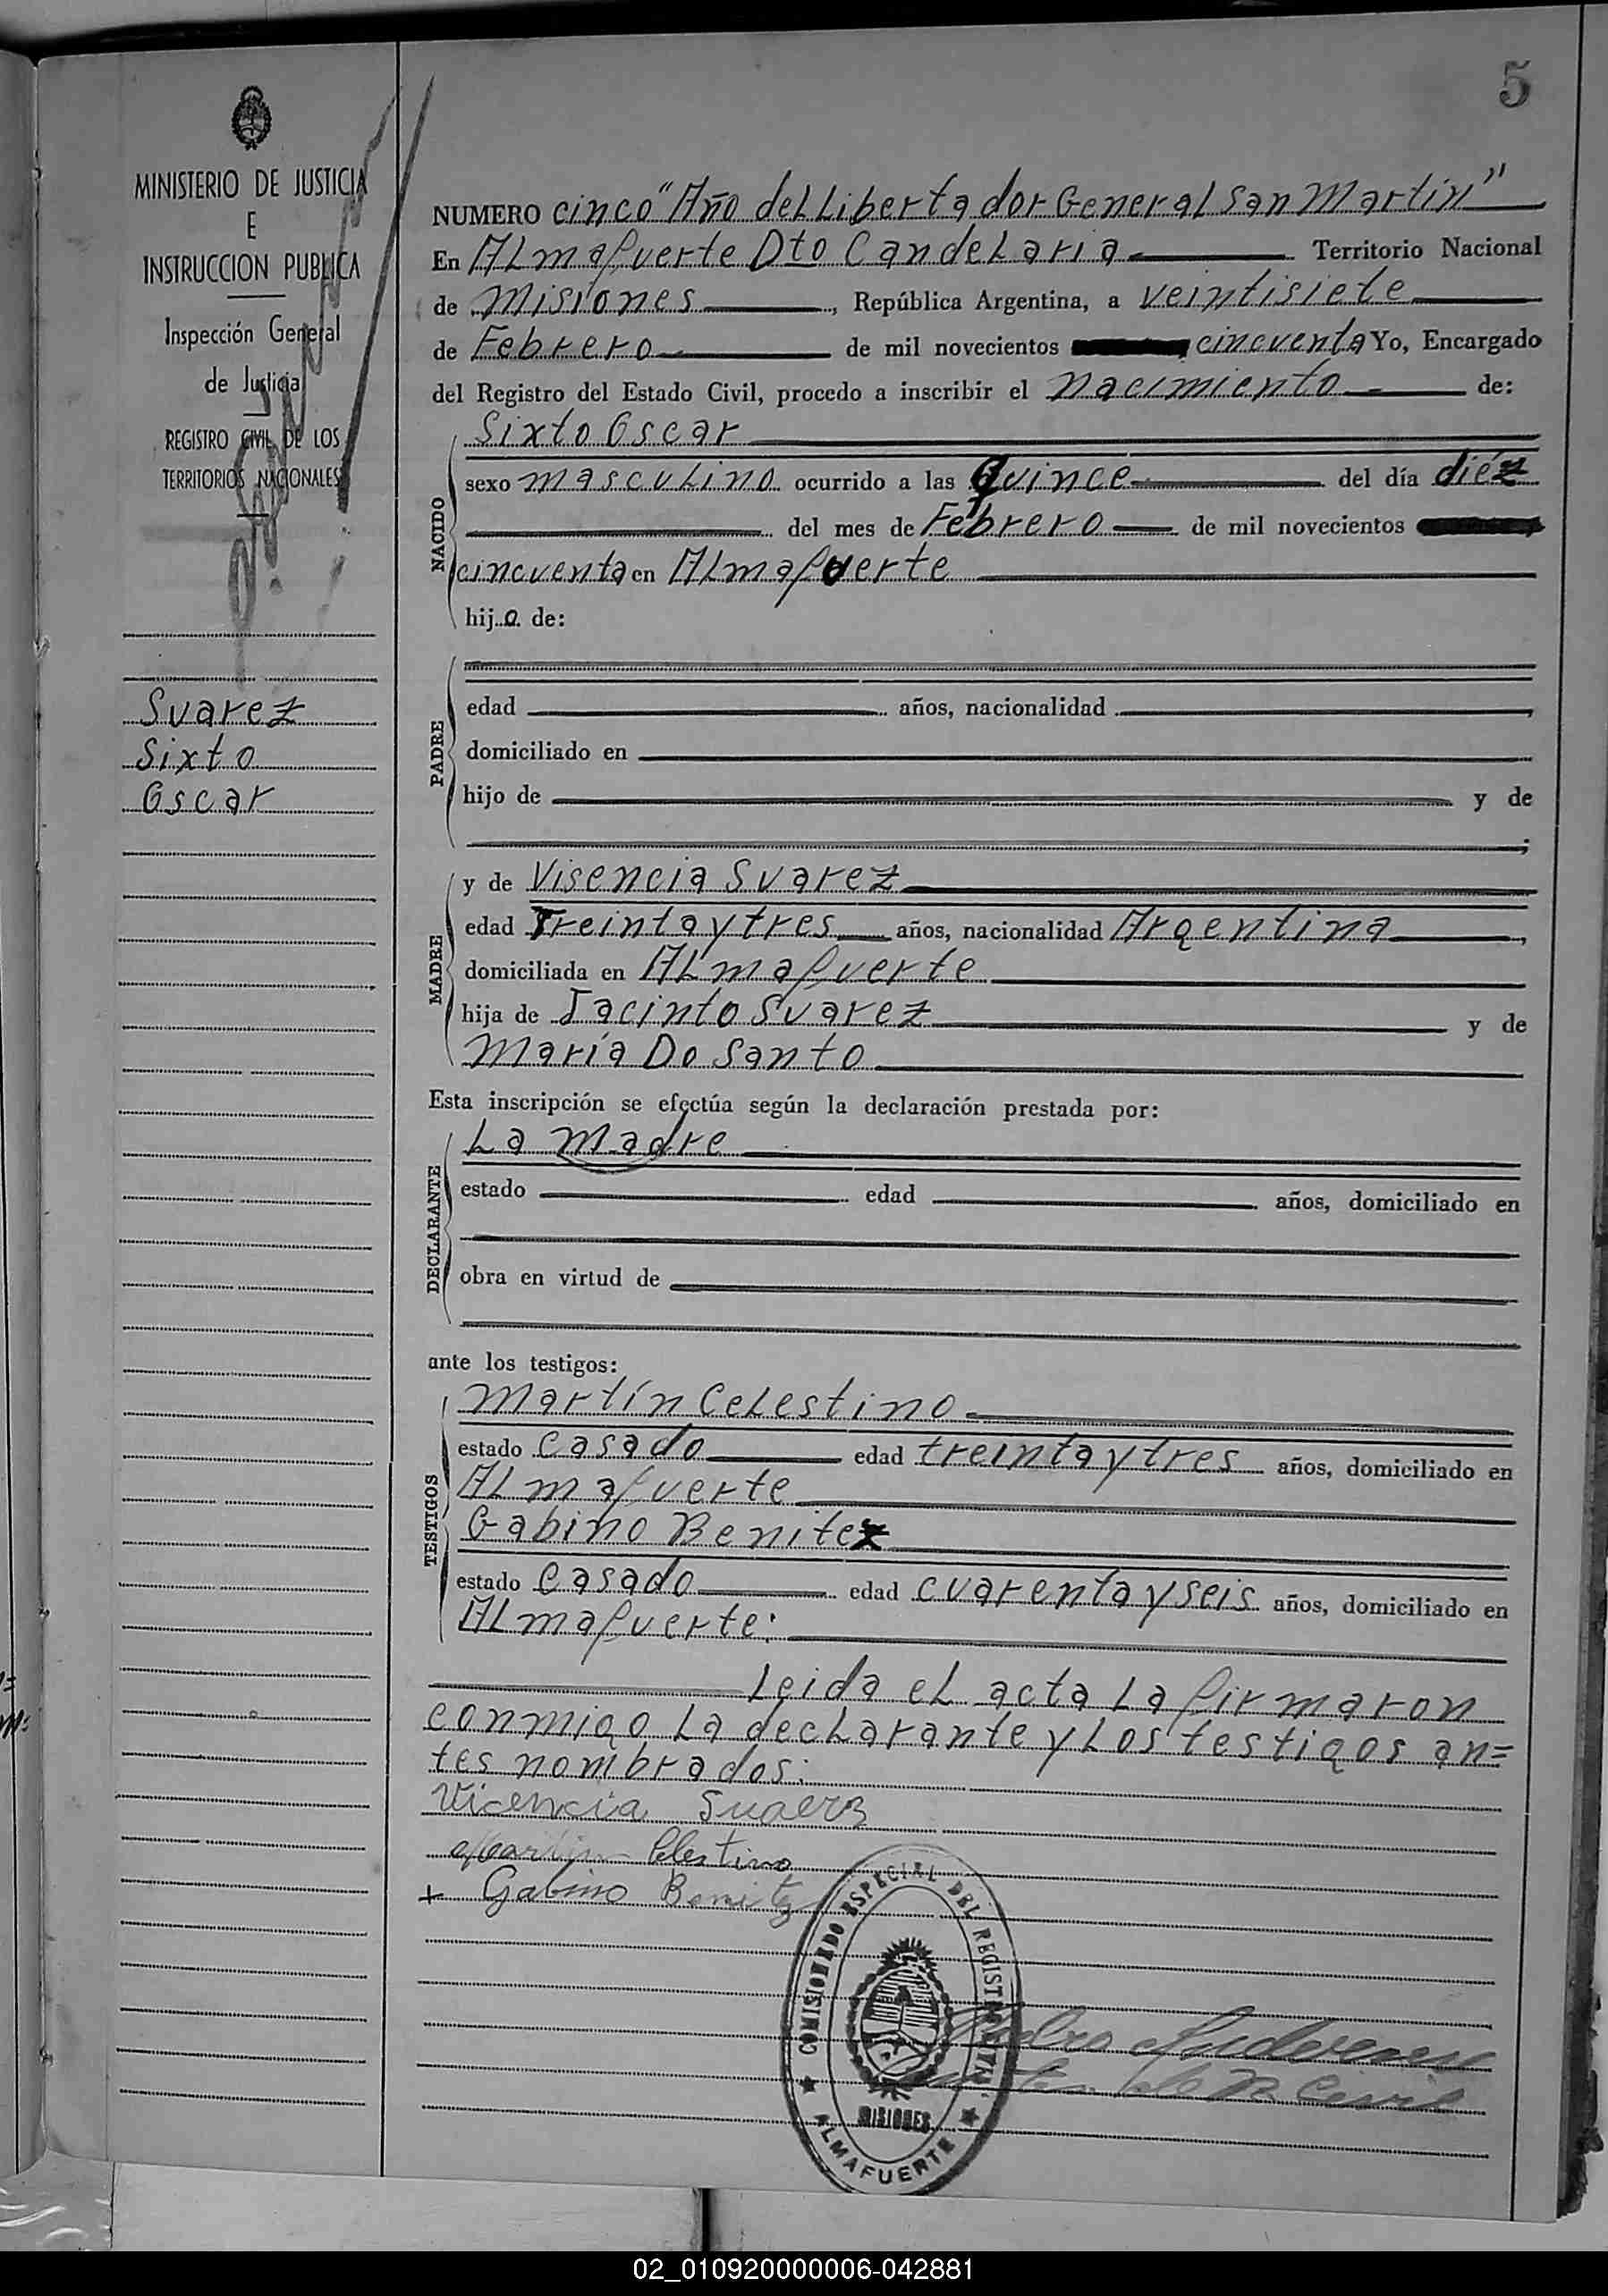 5
MINISTERIO DE JUSTICIA
E
INSTRUCCION PUBLICA
Inspección General
de Justicia
REGISTRO CIVIL DE LOS
TERRITORIOS NACIONALES
Suarez
Sixto
Oscar
NUMERO cinco "Año del Libertador General San Martín"
En Almafuerte Dto Candelaria Territorio Nacional
de Misiones, República Argentina, a veintisiete
de Febrero de mil novecientos cincuenta Yo, Encargado
del Registro del Estado Civil, procedo a inscribir el nacimiento de:
NACIDO
Sixto Oscar
sexo masculino ocurrido a las quince del día diéz
del mes de Febrero de mil novecientos
cincuenta en Almafuerte
hijo de:
PADRE
edad años, nacionalidad ,
domiciliado en
hijo de y de
;
MADRE
y de Visencia Suarez
edad Treinta y tres años, nacionalidad Argentina,
domiciliada en Almafuerte
hija de Jacinto Suarez y de
María Do Santo
Esta inscripción se efectúa según la declaración prestada por:
DECLARANTE
La Madre
estado edad años, domiciliado en
obra en virtud de
ante los testigos:
TESTIGOS
Martín Celestino
estado casado edad treinta y tres años, domiciliado en
Almafuerte
Gabino Benitez
estado casado edad cuarenta y seis años, domiciliado en
Almafuerte:
Leida el acta la firmaron
conmigo la declarante y los testigos an=
tes nombrados:
Vicencia Suaerz
Martin Celestino
+ Gabino Benitez
COMISIONADO ESPECIAL DEL REGISTRO CIVIL
MISIONES
ALMAFUERTE
R Civil
02_010920000006-042881